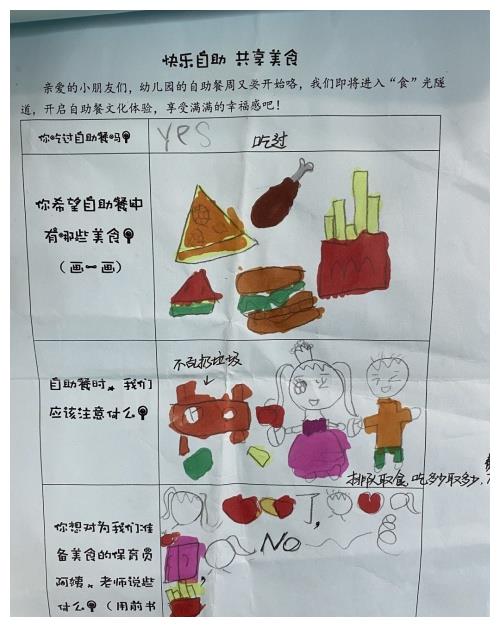 快乐自助 共享美食
亲爱的小朋友们，幼儿园的自助餐周又要开始咯，我们即将进入“食”光隧
道，开启自助餐文化体验，享受满满的幸福感吧！
你吃过自助餐吗？
yes 吃过
你希望自助餐中
有哪些美食？
（画一画）
自助餐时，我们
应该注意什么？
不乱扔垃圾
排队取食，吃多少取多少，
你想对为我们准
备美食的保育员
阿姨、老师说些
什么？（用前书
了，
，
No